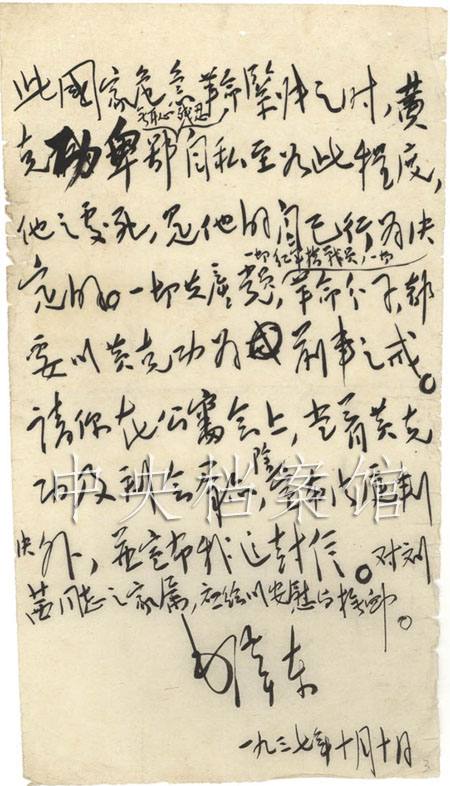 此國家危急革命緊张之时，黄
克功卑鄙无耻残忍自私至如此程度，
他之处死，是他的自己行为决
定的。一切共產党员，一切红军指战员，一切革命分子，都
要以黄克功为前車之戒。
请你在公審会上，当着黄克
功及到会群众，除宣布法庭判
决外，並宣布我这封信。对刘
茜同志之家属，应给以安慰与抚卹。
毛泽东
一九三七年十月十日
中央档案馆
3